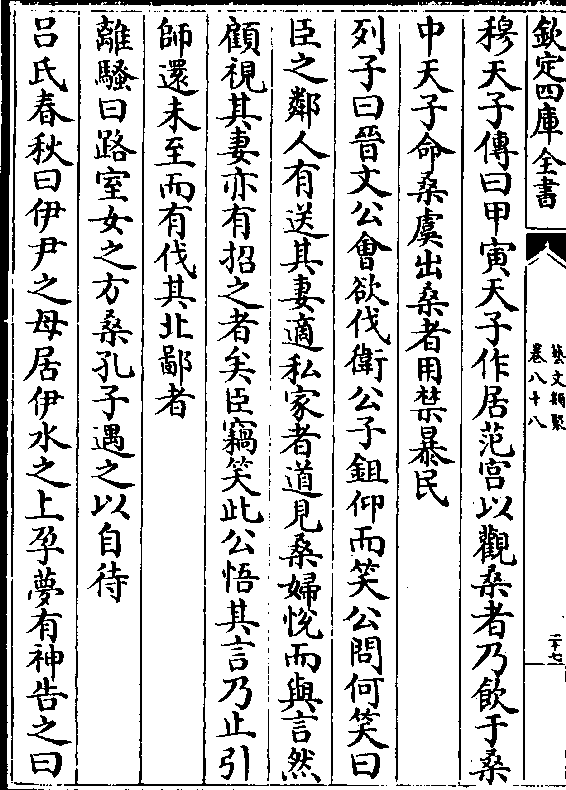 欽定四庫全書
藝文類聚
卷八十八
二十七
穆天子傳曰甲寅天子作居范宮以觀桑者乃飲于桑
中天子命桑虞出桑者用禁暴民
列子曰晉文公會欲伐衛公子鉏仰而笑公問何笑曰
臣之鄰人有送其妻適私家者道見桑婦悅而與言然
顧視其妻亦有招之者矣臣竊笑此公悟其言乃止引
師還未至而有伐其北鄙者
離騷曰路室女之方桑孔子遇之以自待
呂氏春秋曰伊尹之母居伊水之上孕夢有神告之曰